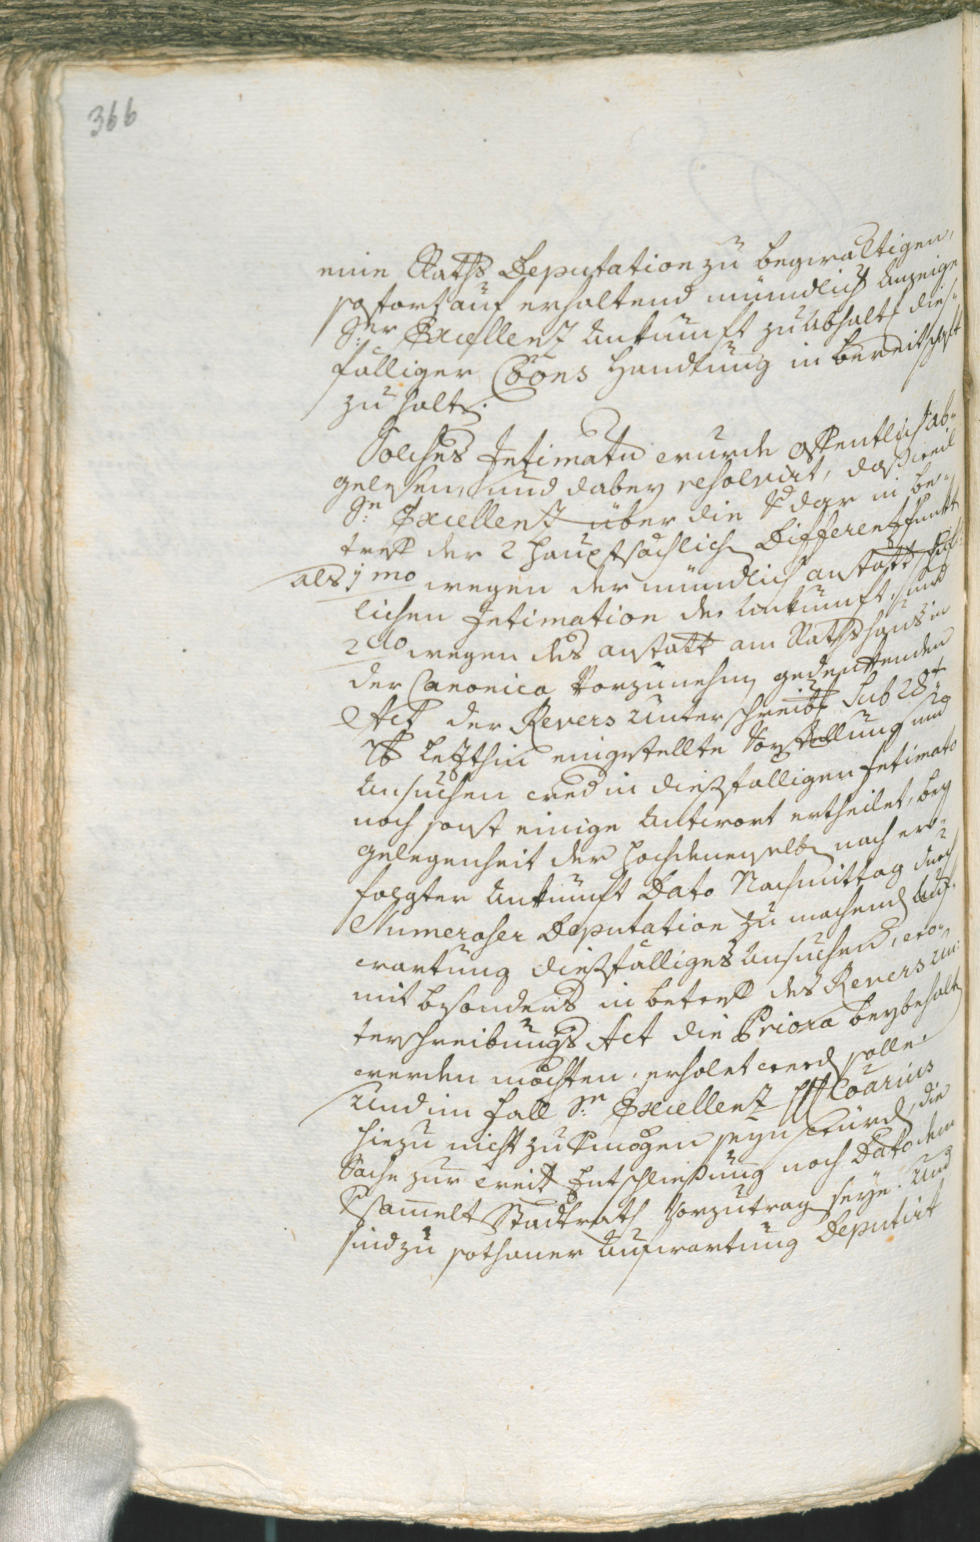 366
eine Raths Deputation zu begwaltigen,
sofort auf erhaltend mündlich Anzeige
Sr Excellenz Ankunft zu Abhalt dies-
fälliger Coons Handlung in bereitschafft
zu halt.
Solches Intimatū wurde offentlich ab-
gelesen, und dabey resolvirt, daß weil
Sr Excellenz über die in be-
treff der 2 hauptsächlich Differentz punct
als 1mo wegen der mündlich anstatt
lichen Intimation der Ankunft, und
2do wegen des anstatt am Rathshaus in
der Canonica vorzunehm gedenkenden
Act der Revers Unterschreib sub 28t
7b letzthin eingestellte Vorstellung und
Ansuchen wed in diesfälligen Intimato
noch sonst einige Antwort ertheilet, bey
gelegenheit der hochdenenselb nach er-
folgter Ankunft Dato Nachmittag durch
Numeroser Deputation zu machend Auf-
wartung diesfälliges Ansuchen, wo-
mit besonders in betreff des Revers Un-
terschreibungs Act die Priora beybehalt
werden möchten, erholet werd solle.
Und im fall Sr Excellenz H Coarius
hiezu nicht zu vermögen seyn würd, die
Sache zur weit Entschliessung noch Dato dem
Versamelt Stadtrath vorzutrag seye. Und
sind zu sothaner Aufwartung Deputirt